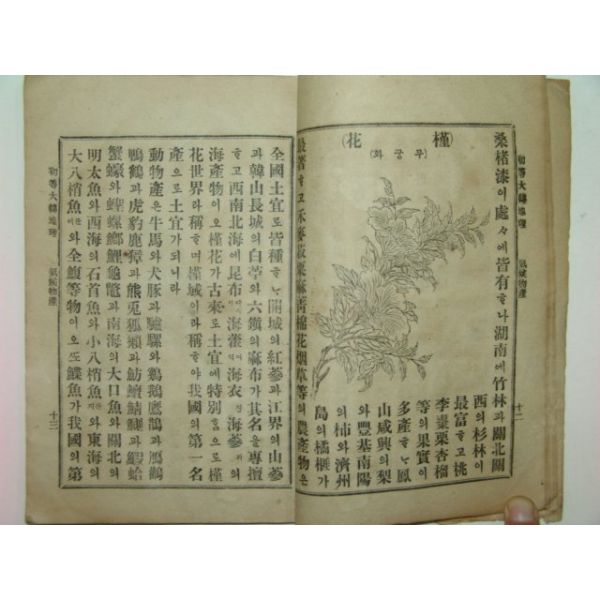 初等大韓地理 氣候物產 十二
桑楮漆이處々에皆有ᄒᆞ나湖南에竹林과關北關
西의杉林이
最富ᄒᆞ고桃
李棗栗杏榴
等의果實이
多產ᄒᆞᄂᆞᆫ鳳
山咸興의梨
와豐基南陽
의柿와濟州
島의橘榧가
(槿花)
(무궁화)
最著ᄒᆞ고禾麥菽粟麻苧棉花烟草等의農產物은
全國土宜로皆種ᄒᆞᄂᆞᆫ開城의紅蔘과江界의山蔘
과韓山長城의白苧와六鎭의麻布가其名을專擅
ᄒᆞ고西南北海에昆布 海藿 海衣 海蔘의
海產物이오槿花가古來로土宜에特別홈으로槿
花世界라稱ᄒᆞ며槿域이라稱ᄒᆞ야我國의第一名
產으로土宜가되니라
動物產은牛馬와犬豚과驢騾와鷄鵝鷹鸇과鴈鶴
鴨鶴과虎豹鹿獐과熊兎狐獺과魴 鯽과鰐蛤
蟹蠔와蟬螺鄕龜鼈과南海의大口魚와關北의
明太魚와西海의石首魚와小八梢魚 와東海의
大八梢魚 와全鰒等物이오ᄯᅩ鰈魚가我國의第
初等大韓地理 氣候物產 十三